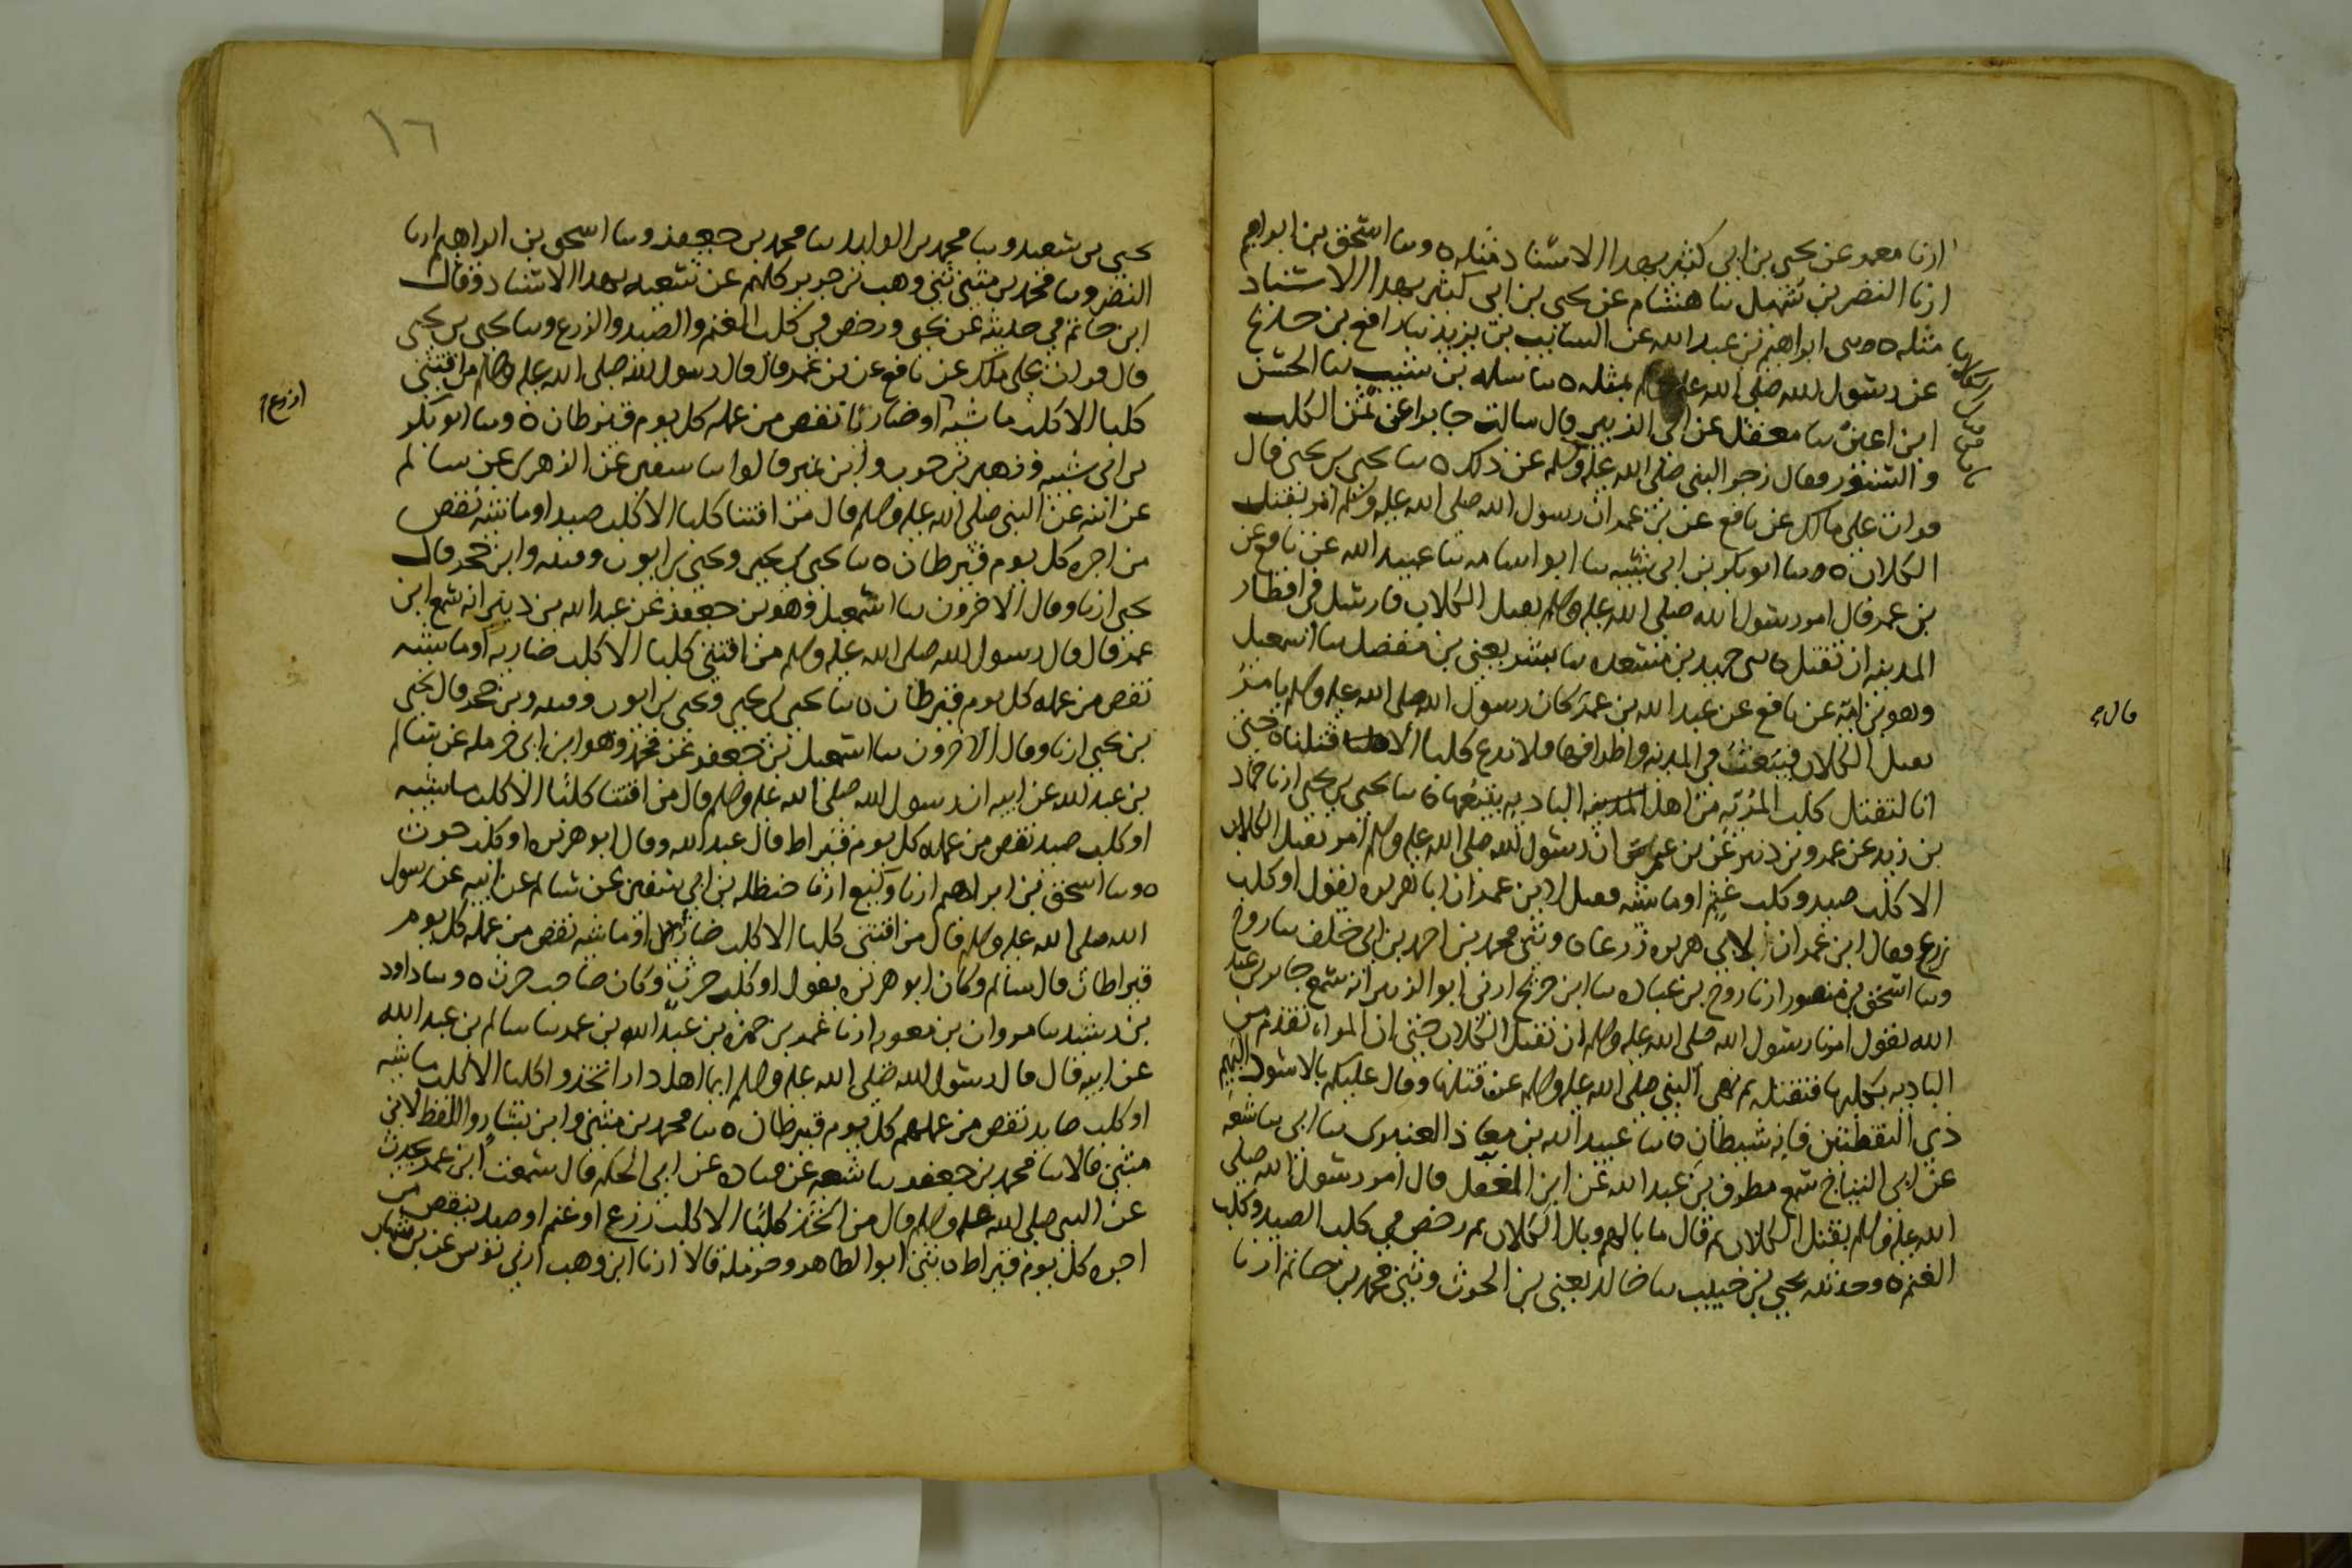 ارنا معمر عن يحيى بن ابي كثير بهدا الاسناد مثله ٥ وسا اسحق بن ابراهيم
ارنا النضر بن شميل سا هشام عن يحيى بن ابي كثير بهدا الاسناد
مثله ٥ وسى ابراهيم بن عبد الله عن السائب بن يزيد سا رافع بن خديج
عن رسول الله صلى الله عليه بمثله ٥ سا سلمه بن شبيب سا الحسن
ابن اعين سا معقل عن ابي الزبير قال سالت جابرا عن ثمن الكلب
و السنور فقال زجر النبي صلى الله عليه وسلم عن ذلك ٥ سا يحيى بن يحيى قال
قرات على مالك عن نافع عن بن عمر ان رسول الله صلى الله عليه وسلم امر بقتل
الكلاب ٥ وسا ابو بكر بن ابي شيبه سا ابو اسامه سا عبيد الله عن نافع عن
بن عمر قال امر رسول الله صلى الله عليه وسلم بقتل الكلاب فارسل في اقطار
المدينه ان تقتل ٥ سى حميد بن مسعده سا بشر يعني بن مفضل سا اسمعيل
وهو بن اميه عن نافع عن عبد الله بن عمر كان رسول الله صلى الله عليه وسلم يامر
بقتل الكلاب فتبعث في المدينه واطرافها فلا ندع كلبا الا قتلناه حتى
انا لنقتل كلب المريه من اهل الباديه يتبعها ٥ سا يحيى بن يحيى ارنا حماد
بن زيد عن عمرو بن دينر عن بن عمر ان رسول الله صلى الله عليه وسلم امر بقتل الكلاب
الا كلب صيد وكلب غنم او ماشيه فقيل لابن عمر ان ابا هريره يقول او كلب
زرع فقال ابن عمر ان لابي هريره زرعا ٥ وثني محمد بن احمد بن ابي خلف سا روح
وسا اسحق بن منصور ارنا روح بن عباده سا ابن جريج ارني ابو الزبير انه سمع جابر بن عبد
الله يقول امرنا رسول الله صلى الله عليه وسلم ان نقتل الكلاب حتى ان المراه تقدم من
الباديه بكلبها فنقتله ثم نهى النبي صلى الله عليه وسلم عن قتلها وقال عليكم بالاسود البهيم
ذي النقطتين فانه شيطان ٥ سا عبيد الله بن معاذ العنبري سا ابي سا شعبه
عن ابي التياح سمع مطرف بن عبد الله عن ابن المغفل قال امر رسول الله صلى
الله عليه وسلم بقتل الكلاب ثم قال ما بالهم وبال الكلاب ثم رخص في كلب الصيد وكلب
الغنم ٥ وحدثنيه يحيى بن حبيب سا خالد يعني بن الحرث وثني محمد بن حاتم ارنا
قال
١٦
يحيى بن سعيد وسا محمد بن الوليد سا محمد بن جعفر وسا اسحق بن ابراهيم ارنا
النضر وسا محمد بن مثنى ثني وهب بن جرير كلهم عن شعبه بهدا الاسناد وقال
ابن حاتم في حديثه عن يحيى ورخص في كلب الغنم والصيد والزرع وسا يحيى بن يحيى
قال قرات على ملك عن نافع عن بن عمر قال قال رسول الله صلى الله عليه وسلم من اقتنى
كلبا الا كلب ماشيه او ضاريا نقص من عمله كل يوم قيرطان ٥ وسا ابو بكر
بن ابي شيبه وزهير بن حرب وابن نمير قالوا سا سفين عن الزهري عن سالم
عن ابيه عن النبي صلى الله عليه وسلم قال من اقتنا كلبا الا كلب صيد او ماشيه نقص
من اجره كل يوم قيرطان ٥ سا يحيى بن يحيى ويحيى بن ايوب وقتيبه وابن حجر قال
يحيى ارنا وقال الاخرون سا اسمعيل وهو بن جعفر عن عبد الله بن دينر انه سمع ابن
عمر قال قال رسول الله صلى الله عليه وسلم من اقتنى كلبا الا كلب ضاريه او ماشيه
نقص من عمله كل يوم قيرطان ٥ سا يحيى بن يحيى ويحيى بن ايوب وقتيبه وبن حجر قال يحيى
بن يحيى ارنا وقال الاخرون سا اسمعيل بن جعفر عن محمد وهو ابن ابي حرمله عن سالم
بن عبد الله عن ابيه ان رسول الله صلى الله عليه وسلم قال من اقتنا كلبا الا كلب ماشيه
او كلب صيد نقص من عمله كل يوم قيراط قال عبد الله وقال ابو هريره او كلب حرث
٥ وسا اسحق بن ابراهيم ارنا وكيع ارنا حنظله بن ابي سفين عن سالم عن ابيه عن رسول
الله صلى الله عليه وسلم قال من اقتنى كلبا الا كلب ضاري او ماشيه نقص من عمله كل يوم
قيراطان قال سالم وكان ابو هريره يقول او كلب حرث وكان صاحب حرث ٥ وسا داود
بن رشيد سا مروان بن معويه ارنا عمر بن حمزه بن عبد الله بن عمر سا سالم بن عبد الله
عن ابيه قال قال رسول الله صلى الله عليه وسلم ايما اهل دار اتخذوا كلبا الا كلب ماشيه
او كلب صايد نقص من عملهم كل يوم قيرطان ٥ سا محمد بن مثنى وابن بشار واللفظ لابن
مثنى قالا سا محمد بن جعفر سا شعبه عن قتاده عن ابي الحكم قال سمعت ابن عمر يحدث
عن النبي صلى الله عليه وسلم قال من اتخذ كلبا الا كلب زرع او غنم او صيد ينقص من
اجره كل يوم قيراط ٥ ثني ابو الطاهر وحرمله قالا ارنا ابن وهب ارني يونس عن بن شهاب